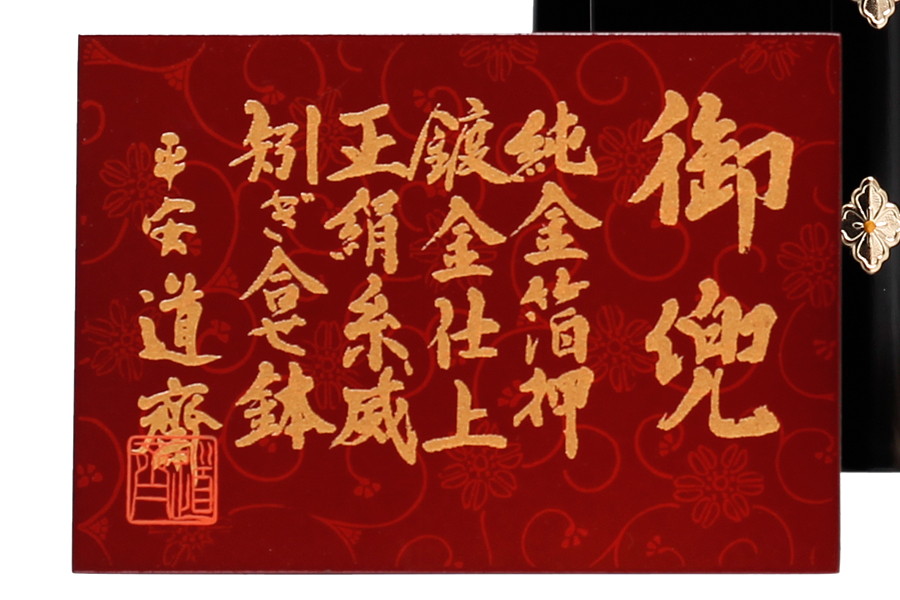 御兜
純金箔押
鍍金仕上
正絹糸威
矧ぎ合せ鉢
平安道齋